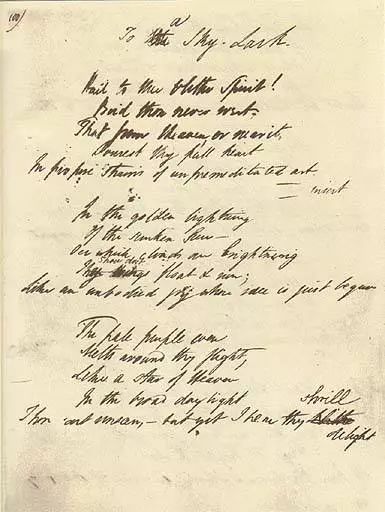 100)
To a Sky-Lark.
Hail to thee blithe Spirit!
Bird thou never wert.
That from Heaven, or near it,
Pourest thy full heart
In profuse strains of unpremeditated art
insert
In the golden lightning
Of the sunken Sun—
Oer which clouds are brightning
Thou dost float & run;
Like an unbodied joy whose race is just begun
The pale purple even
Melts around thy flight,
Like a star of Heaven
In the broad daylight
Thou art unseen,— but yet I hear thy shrill
delight